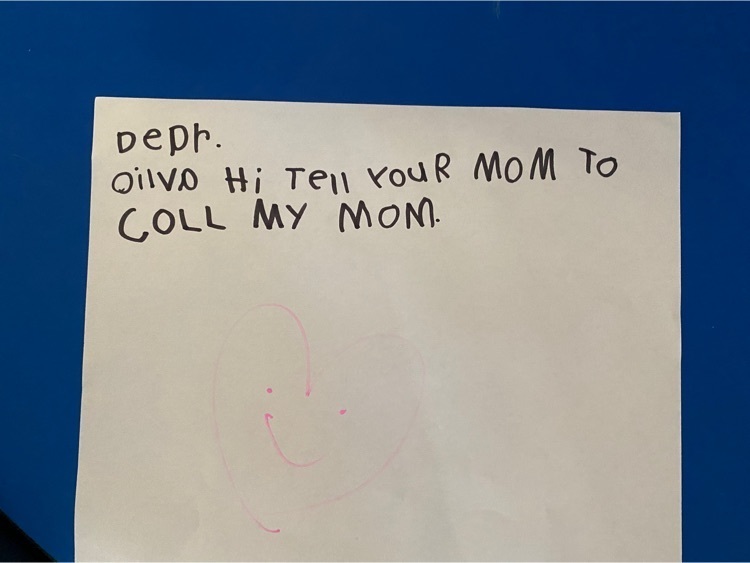 Depr.
Oilva Hi Tell YouR MOM To
COLL MY MOM.